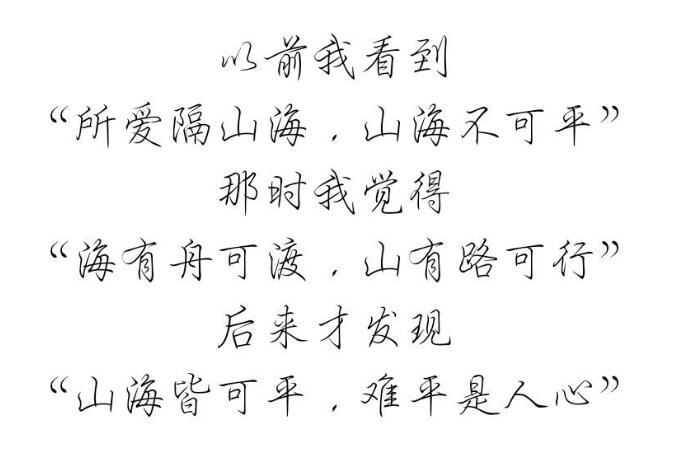 以前我看到
“所爱隔山海，山海不可平”
那时我觉得
“海有舟可渡，山有路可行”
后来才发现
“山海皆可平，难平是人心”